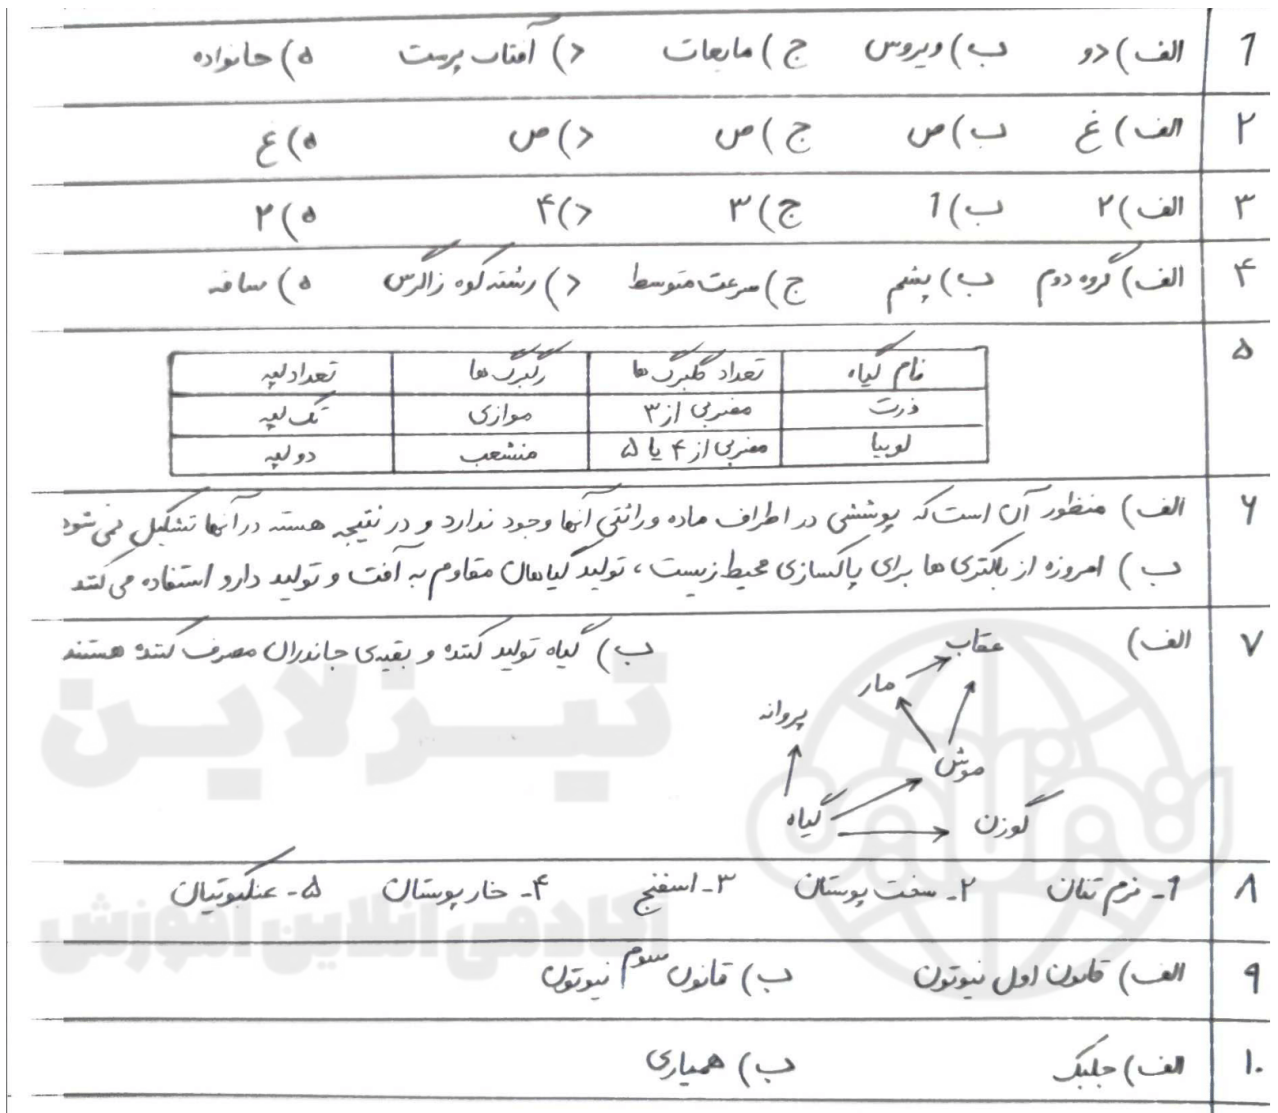 1 الف) دو ب) ویروس ج) مایعات د) آفتاب پرست ه) خانواده
۲ الف) غ ب) ص ج) ص د) ص ه) غ
۳ الف) ۲ ب) 1 ج) ۳ د) ۴ ه) ۲
۴ الف) گروه دوم ب) پشم ج) سرعت متوسط د) رشته کوه زاگرس ه) ساقه
۵
نام گیاه تعداد گلبرگ ها رگبرگ ها تعداد لپه
ذرت مضربی از ۳ موازی تک لپه
لوبیا مضربی از ۴ یا ۵ منشعب دو لپه
۶ الف) منظور آن است که پوششی در اطراف ماده وراثتی آنها وجود ندارد و در نتیجه هسته در آنها تشکیل نمی شود
ب) امروزه از باکتری ها برای پاکسازی محیط زیست، تولید گیاهان مقاوم به آفت و تولید دارو استفاده می کنند
۷ الف) ب) گیاه تولید کننده و بقیه‌ی جانداران مصرف کننده هستند
عقاب
مار
پروانه
موش
گیاه
گوزن
تیزلاین
۸ 1- نرم تنان ۲- سخت پوستان ۳- اسفنج ۴- خارپوستان ۵- عنکبوتیان
آکادمی آنلاین آموزش
۹ الف) قانون اول نیوتون ب) قانون سوم نیوتون
۱۰ الف) جلبک ب) همیاری